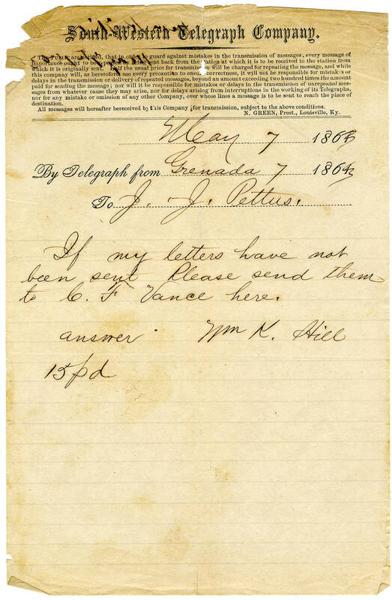 South-Western Telegraph Company.
which it is originally sent. Half the usual price for transmission will be charged for repeating the message, and while
this company will, as heretofore use every precaution to ensure correctness, it will not be responsible for mistakes or
delays in the transmission or delivery of repeated messages, beyond an amount exceeding two hundred times the amount
paid for sending the message; nor will it be responsible for mistakes or delays in the transmission of unrepeated messages
from whatever cause they may arise, nor for delays arising from interruptions in the working of its Telegraphs,
nor for any mistake or omission of any other Company, over whose lines a message is to be sent to reach the place of
destination.
All messages will hereafter be received by this Company for transmission, subject to the above conditions.
N. GREEN, Prest., Louisville, Ky.
May 7 186
By Telegraph from Grenada 7 186
To J. J. Pettus.
If my letters have not
been sent Please send them
to C. F Vance here.
answer Wm K. Hill
15 pd